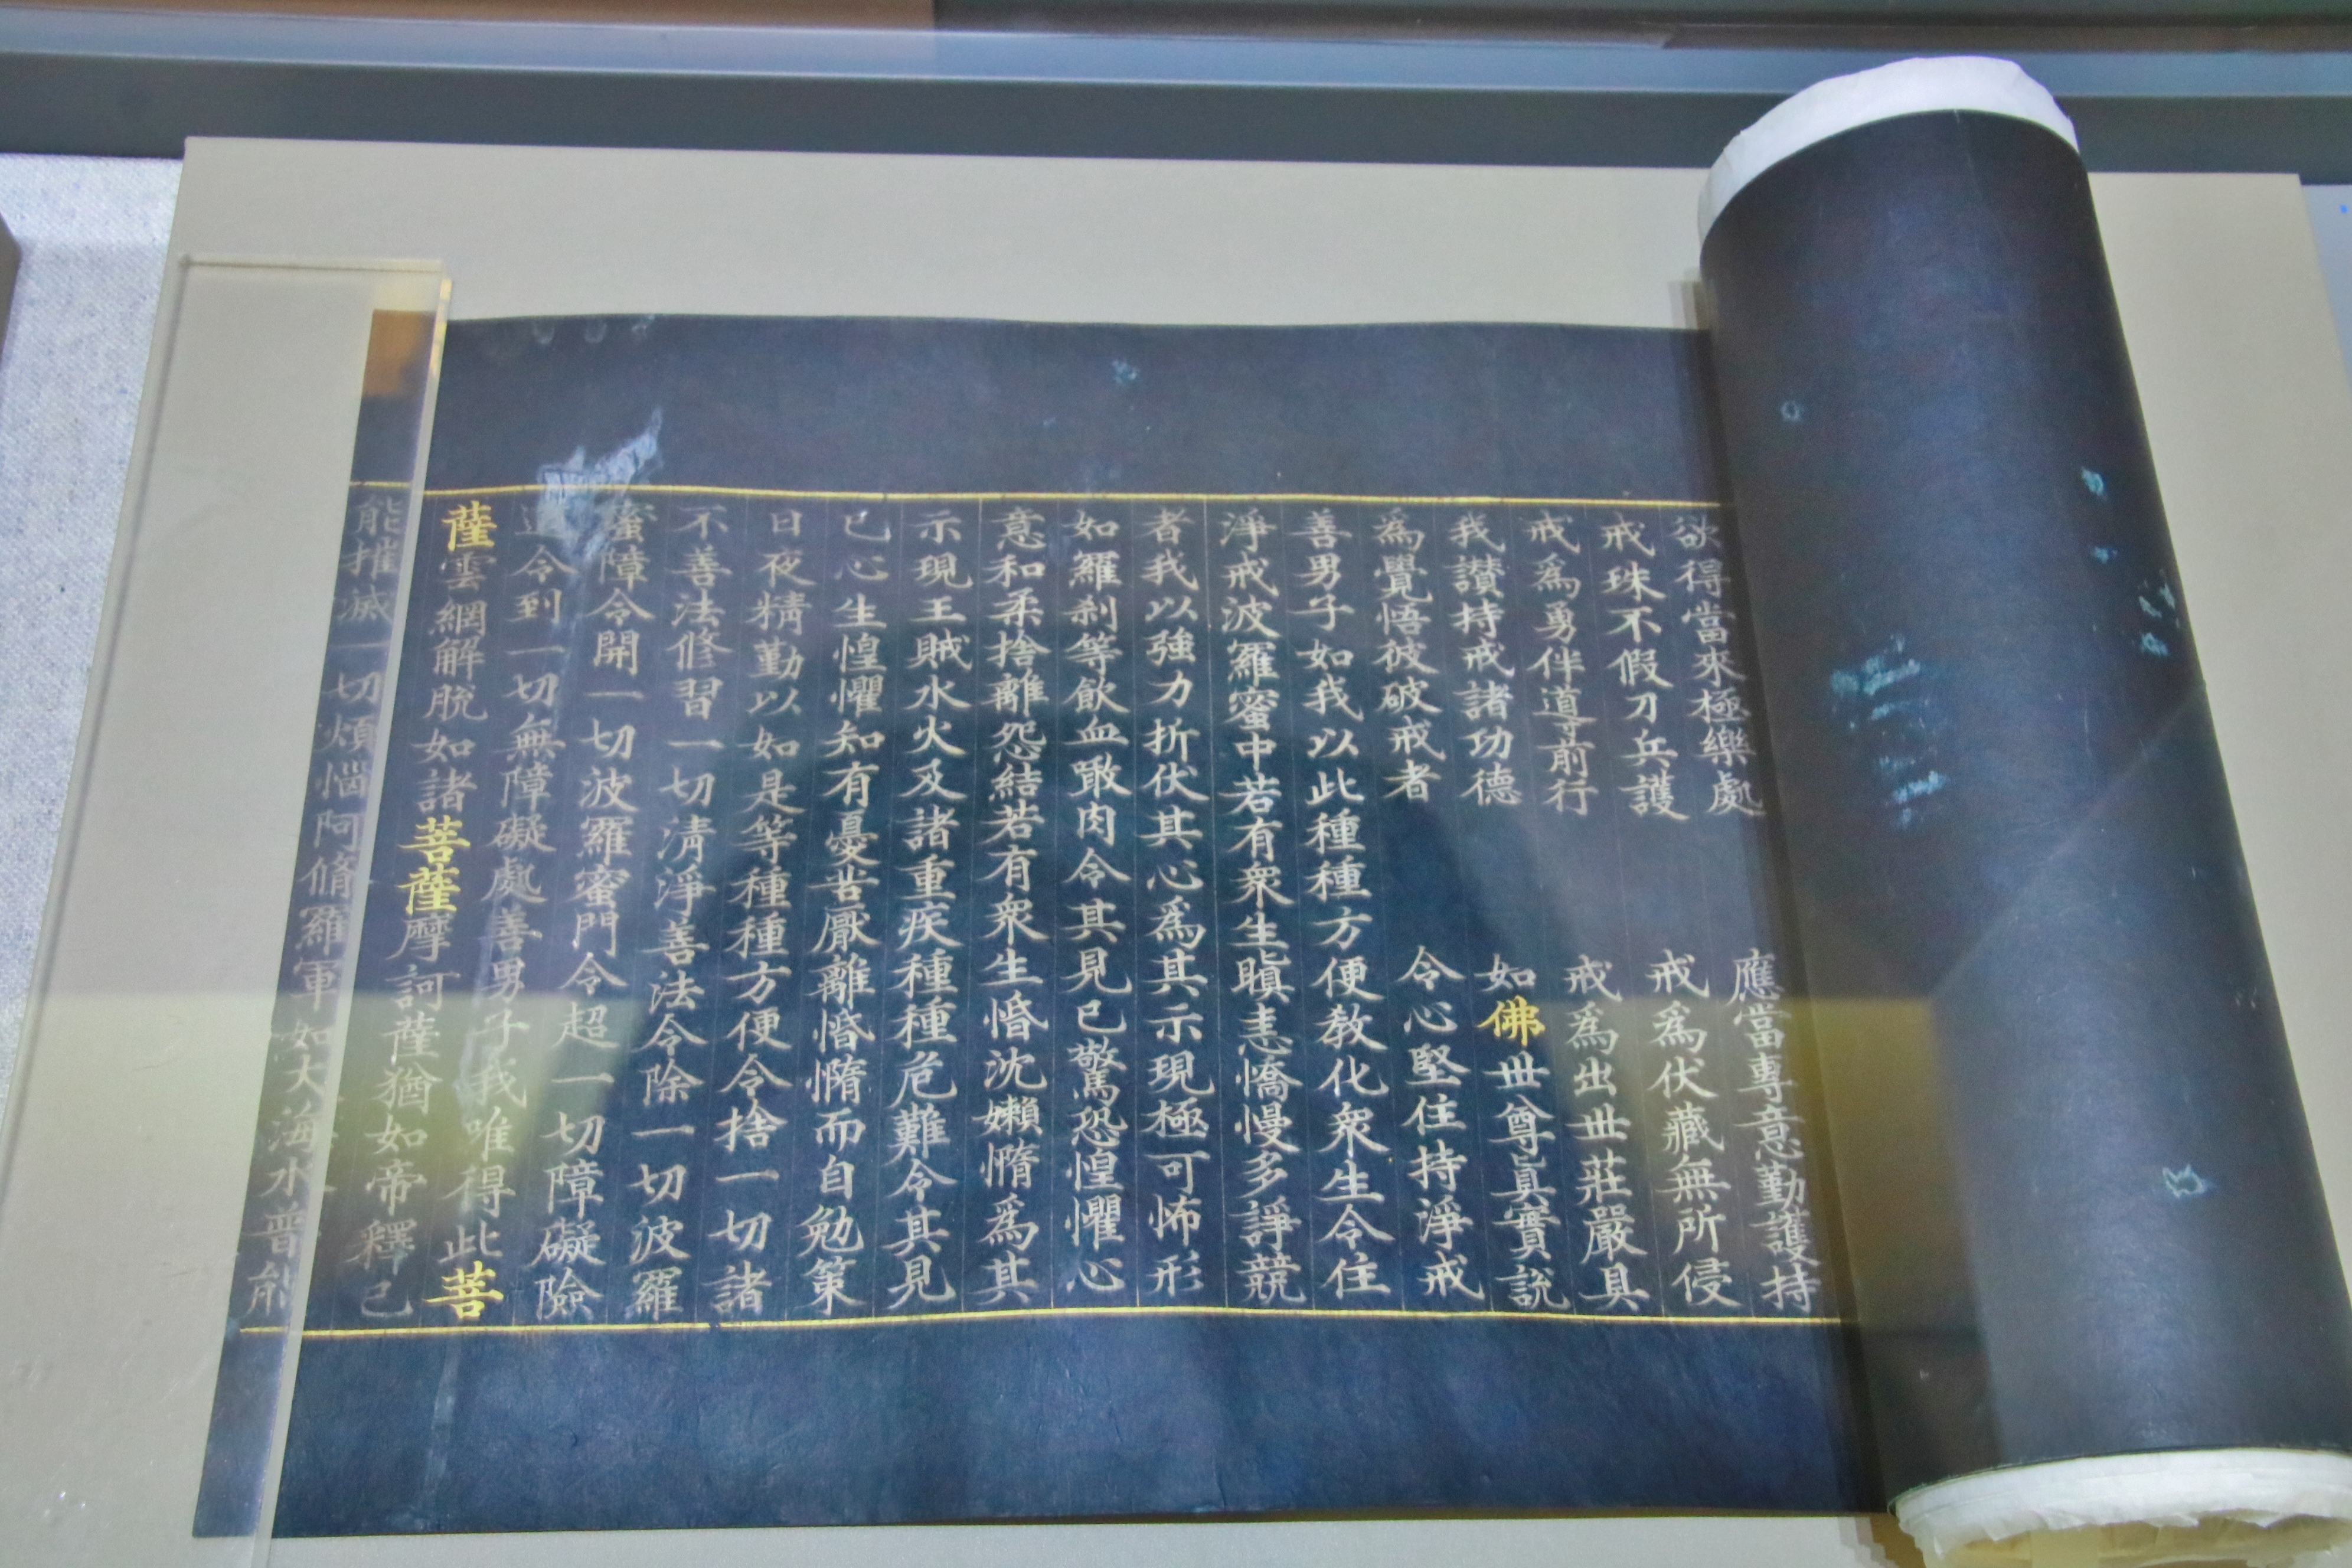 欲得當來極樂處　應當專意勤護持
戒珠不假刀兵護　戒為伏藏無所侵
戒為勇伴道前行　戒為出世莊嚴具
我讃持戒諸功德　如佛世尊真實說
為覺悟彼破戒者　令心堅住持淨戒
善男子如我以此種種方便教化眾生令住
淨戒波羅蜜中若有眾生瞋恚憍慢多諍競
者我以強力折伏其心為其示現極可怖形
如羅剎等飲血噉肉令其見已驚恐惶懼心
意和柔捨離怨結若有眾生惛沈嬾惰為其
示現王賊水火及諸重疾種種危難令其見
已心生惶懼知有憂苦厭離惛惰而自勉策
日夜精勤以如是等種種方便令捨一切諸
不善法修習一切清淨善法令除一切波羅
蜜障令開一切波羅蜜門令超一切障礙險
道令到一切無障礙處善男子我唯得此菩
薩雲網解脫如諸菩薩摩訶薩猶如帝釋已
能摧滅一切煩惱阿脩羅軍如大海水普能